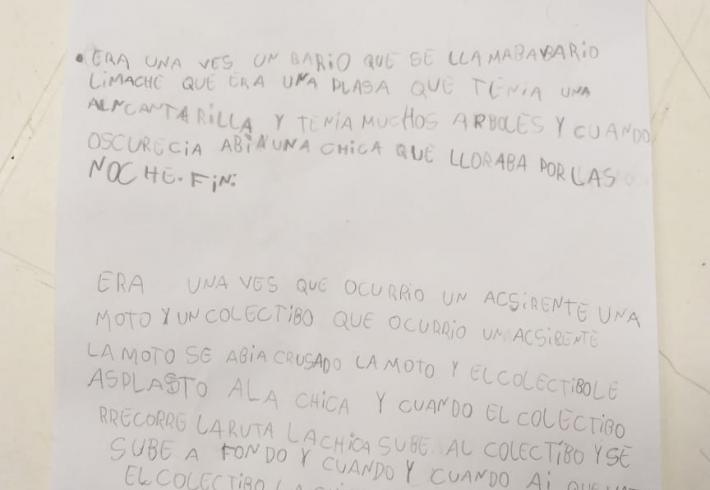 • ERA UNA VES UN BARIO QUE SE LLAMABA BARIO
LIMACHE QUE ERA UNA PLASA QUE TENIA UNA
ALNCANTARILLA Y TENIA MUCHOS ARBOLES Y CUANDO
OSCURECIA ABIA UNA CHICA QUE LLORABA POR LAS
NOCHE. FIN.
ERA UNA VES QUE OCURRIO UN ACSIRENTE UNA
MOTO Y UN COLECTIBO QUE OCURRIO UN ACSIRENTE
LA MOTO SE ABIA CRUSADO LA MOTO Y EL COLECTIBO LE
ASPLASTO A LA CHICA Y CUANDO EL COLECTIBO
RRECORRE LA RUTA LA CHICA SUBE AL COLECTIBO Y SE
SUBE A FONDO Y CUANDO Y CUANDO AI
EL COLECTIBO